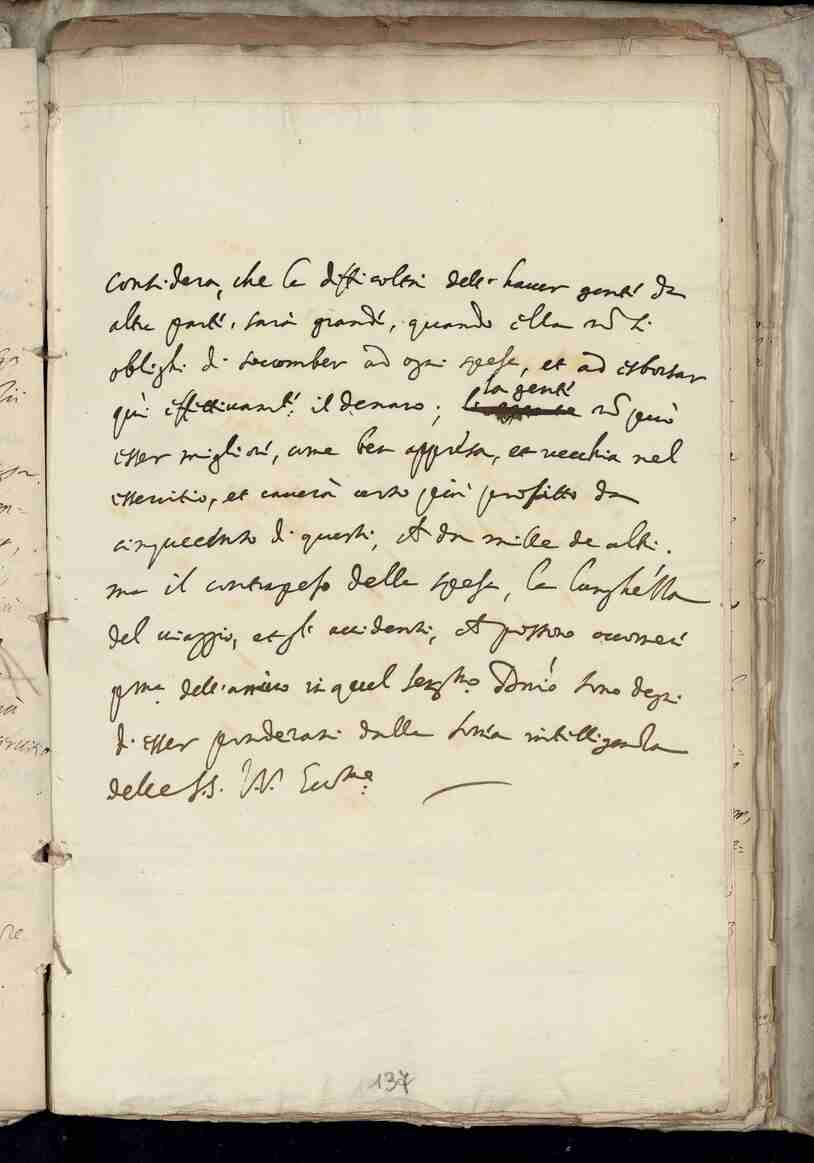 considera, che la difficoltà dell'haver genti da
altre parti, sarà grandi, quando ella nõ si
oblighi di socomber ad ogni spesa, et ad esborsar
qui effettivam.te il denaro; la genti nõ può
esser migliori, come ben appresa, et vecchia nel
esservitio, et caverà certo più profitto da
cinquecento di questi, che da mille de altri.
ma il contrapeso della spesa, la lunghezza
del viaggio, et gl' accidenti, che possono occorreri
p.ma dell'arrivo in quel sono degni
di esser ponderati dalla intelligenza
delle SS. VV. Ecc.me
137